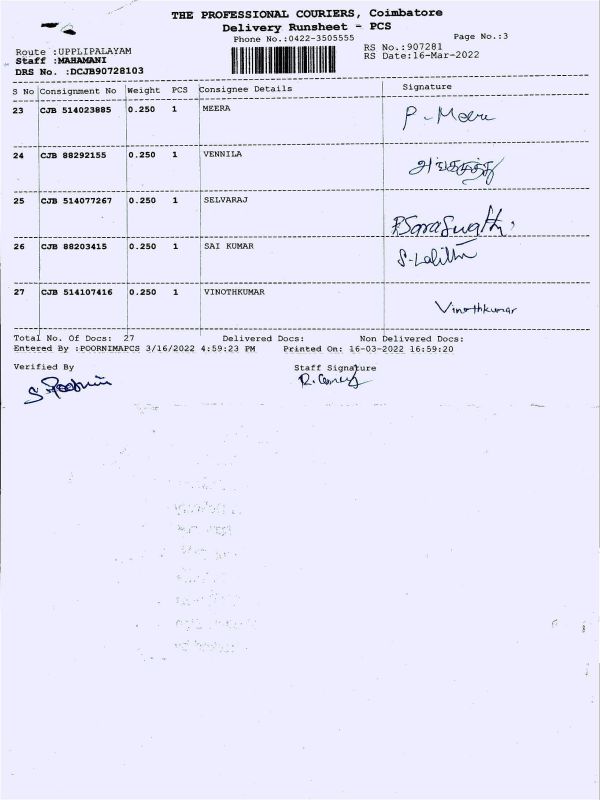 THE PROFESSIONAL COURIERS, Coimbatore
Delivery Runsheet - PCS
Phone No.:0422-3505555 Page No.:3
Route :UPPLIPALAYAM RS No.:907281
Staff :MAHAMANI RS Date:16-Mar-2022
DRS No. :DCJB90728103
S No Consignment No Weight PCS Consignee Details Signature
23 CJB 514023885 0.250 1 MEERA P-Meera
24 CJB 88292155 0.250 1 VENNILA
25 CJB 514077267 0.250 1 SELVARAJ P.Saraswathi
26 CJB 88203415 0.250 1 SAI KUMAR S-Lalitha
27 CJB 514107416 0.250 1 VINOTHKUMAR Vinothkumar
Total No. Of Docs: 27 Delivered Docs: Non Delivered Docs:
Entered By :POORNIMAPCS 3/16/2022 4:59:23 PM Printed On: 16-03-2022 16:59:20
Verified By Staff Signature